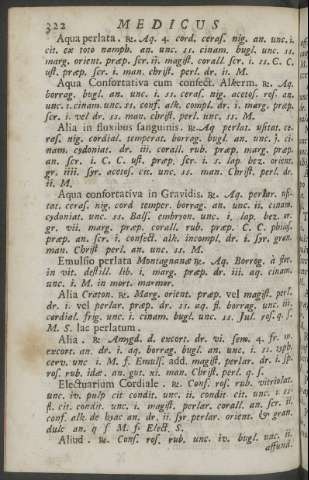 322 MEDICUS
Aqua perlata. ℞. Aq. 4. cord. ceras. nig. an. unc. i.
cit. ex toto nymph. an. unc. ss. cinam. bugl. unc. ss.
marg. orient. præp. scr. ii. magist. corall scr. i. ss. C. C.
ust. præp. scr. i. man. christ. perl. dr. ii. M.
Aqua Confortativa cum confect. Alkerm. ℞. Aq.
borrag. bugl. an. unc. i. ss. ceras. nig. acetos. ros. an.
unc. i. cinam. unc. ss. conf. alk. compl. dr. i. marg. præp.
scr. i. vel dr. ss. man. christ. perl. unc. ss. M.
Alia in fluxibus sanguinis. ℞. Aq perlat. usitat. ce-
ras. nig. cordial. temperat. borrag. bugl. an. unc. j. ci-
nam. cydoniat. dr. iii. corall. rub. præp. marg. præp.
an. scr. i. C. C. ust. præp. scr. i. s. lap bez. orient.
gr. iiii. syr. acetos. cit. unc. ss. man. Christ. perl. dr.
ii. M.
Aqua confortativa in Gravidis. ℞. Aq. perlat. usi-
tat. ceras. nig. cord temper. borrag. an. unc. ii. cinam.
cydoniat. unc. ss Bals. embryon. unc. i. lap. bez. or.
gr. vii. marg. præp. corall. rub. præp. C. C. philos.
præp. an. scr. i. confect. alk. incompl. dr. i. syr. gran.
man. Christ perl. an. unc. ss. M.
Emulsio perlata Montagnanæ ℞. Aq. Borrag. à fœt.
in vit. destill. lib. i. marg. præp. dr. iii. aq. cinam.
unc. i. M. in mort. marmor.
Alia Craton. ℞. Marg. orient. præp. vel magist. perl.
dr. i. vel perlar. præp. dr. ii. aq. fl. borrag. unc. iii.
cordial. frig. unc. i. cinam. bugl. unc. ss. Jul. ros. q. s.
M. S. lac perlatum.
Alia. ℞. Amygd. d. excort. dr. vi. sem. 4. fr. 
excort. an. dr. i. aq. borrag. bugl. an. unc. i. ss. 
cerv. unc i. M. f. Emuls. add. magist. perlar. dr. i. 
ros. rub. idæ. an. gut. xi. man. Christ. perl. q. s.
Electuarium Cordiale. ℞. Cons. ros. rub. vitriolat.
unc. iv. pulp cit condit. unc. ii. condit cit. unc. i ss.
fl. cit. condit. unc. i. magist. perlar. corall. an. scr. ii.
conf. alk. de hyac an. dr. ii. syr perlar. orient. & gran.
dulc an. q s M. f. Elect. S.
Aliud. ℞. Cons. ros. rub. unc. iv. bugl. unc. ii.
affund.